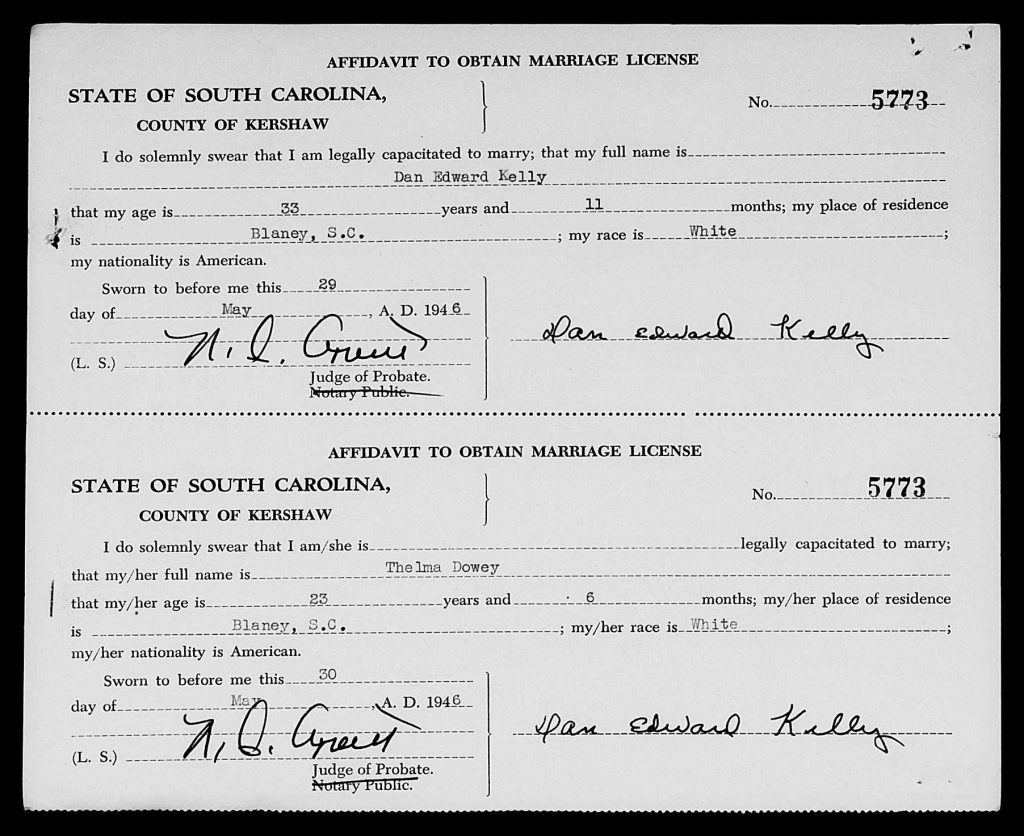 AFFIDAVIT TO OBTAIN MARRIAGE LICENSE
STATE OF SOUTH CAROLINA,
No. 5773
COUNTY OF KERSHAW
I do solemnly swear that I am legally capacitated to marry; that my full name is
Dan Edward Kelly
that my age is 33 years and 11 months; my place of residence
is Blaney, S.C. ; my race is White ;
my nationality is American.
Sworn to before me this 29
day of May , A. D. 1946
Dan Edward Kelly
(L. S.) N.
Judge of Probate.
Notary Public.
AFFIDAVIT TO OBTAIN MARRIAGE LICENSE
STATE OF SOUTH CAROLINA,
No. 5773
COUNTY OF KERSHAW
I do solemnly swear that I am/she is legally capacitated to marry;
that my/her full name is Thelma Dowey
that my/her age is 23 years and 6 months; my/her place of residence
is Blaney, S.C. ; my/her race is White ;
my/her nationality is American.
Sworn to before me this 30
day of May , A. D. 1946
Dan Edward Kelly
(L. S.) N.
Judge of Probate.
Notary Public.